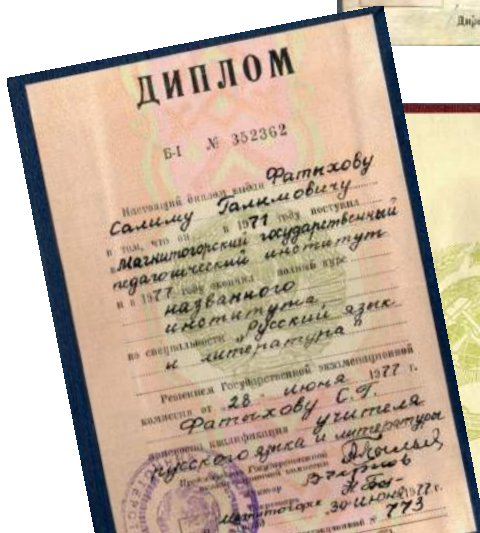 Дир
ДИПЛОМ
Б-I № 352362
Настоящий диплом выдан Фатыхову
Салиму Галимовичу
в том, что он в 1971 году поступил
в Магнитогорский государственный
педагогический институт
и в 1977 году окончил полный курс
названного
института,
по специальности „Русский язык
и литература"
Решением Государственной экзаменационной
комиссии от „28" июня 1977 г.
Фатыхову С.Г.
присвоена квалификация учителя
русского языка и литературы
Председатель Государственной
экзаменационной комиссии
Ректор
Секретарь
Магнитогорск 30 июня 1977 г.
773